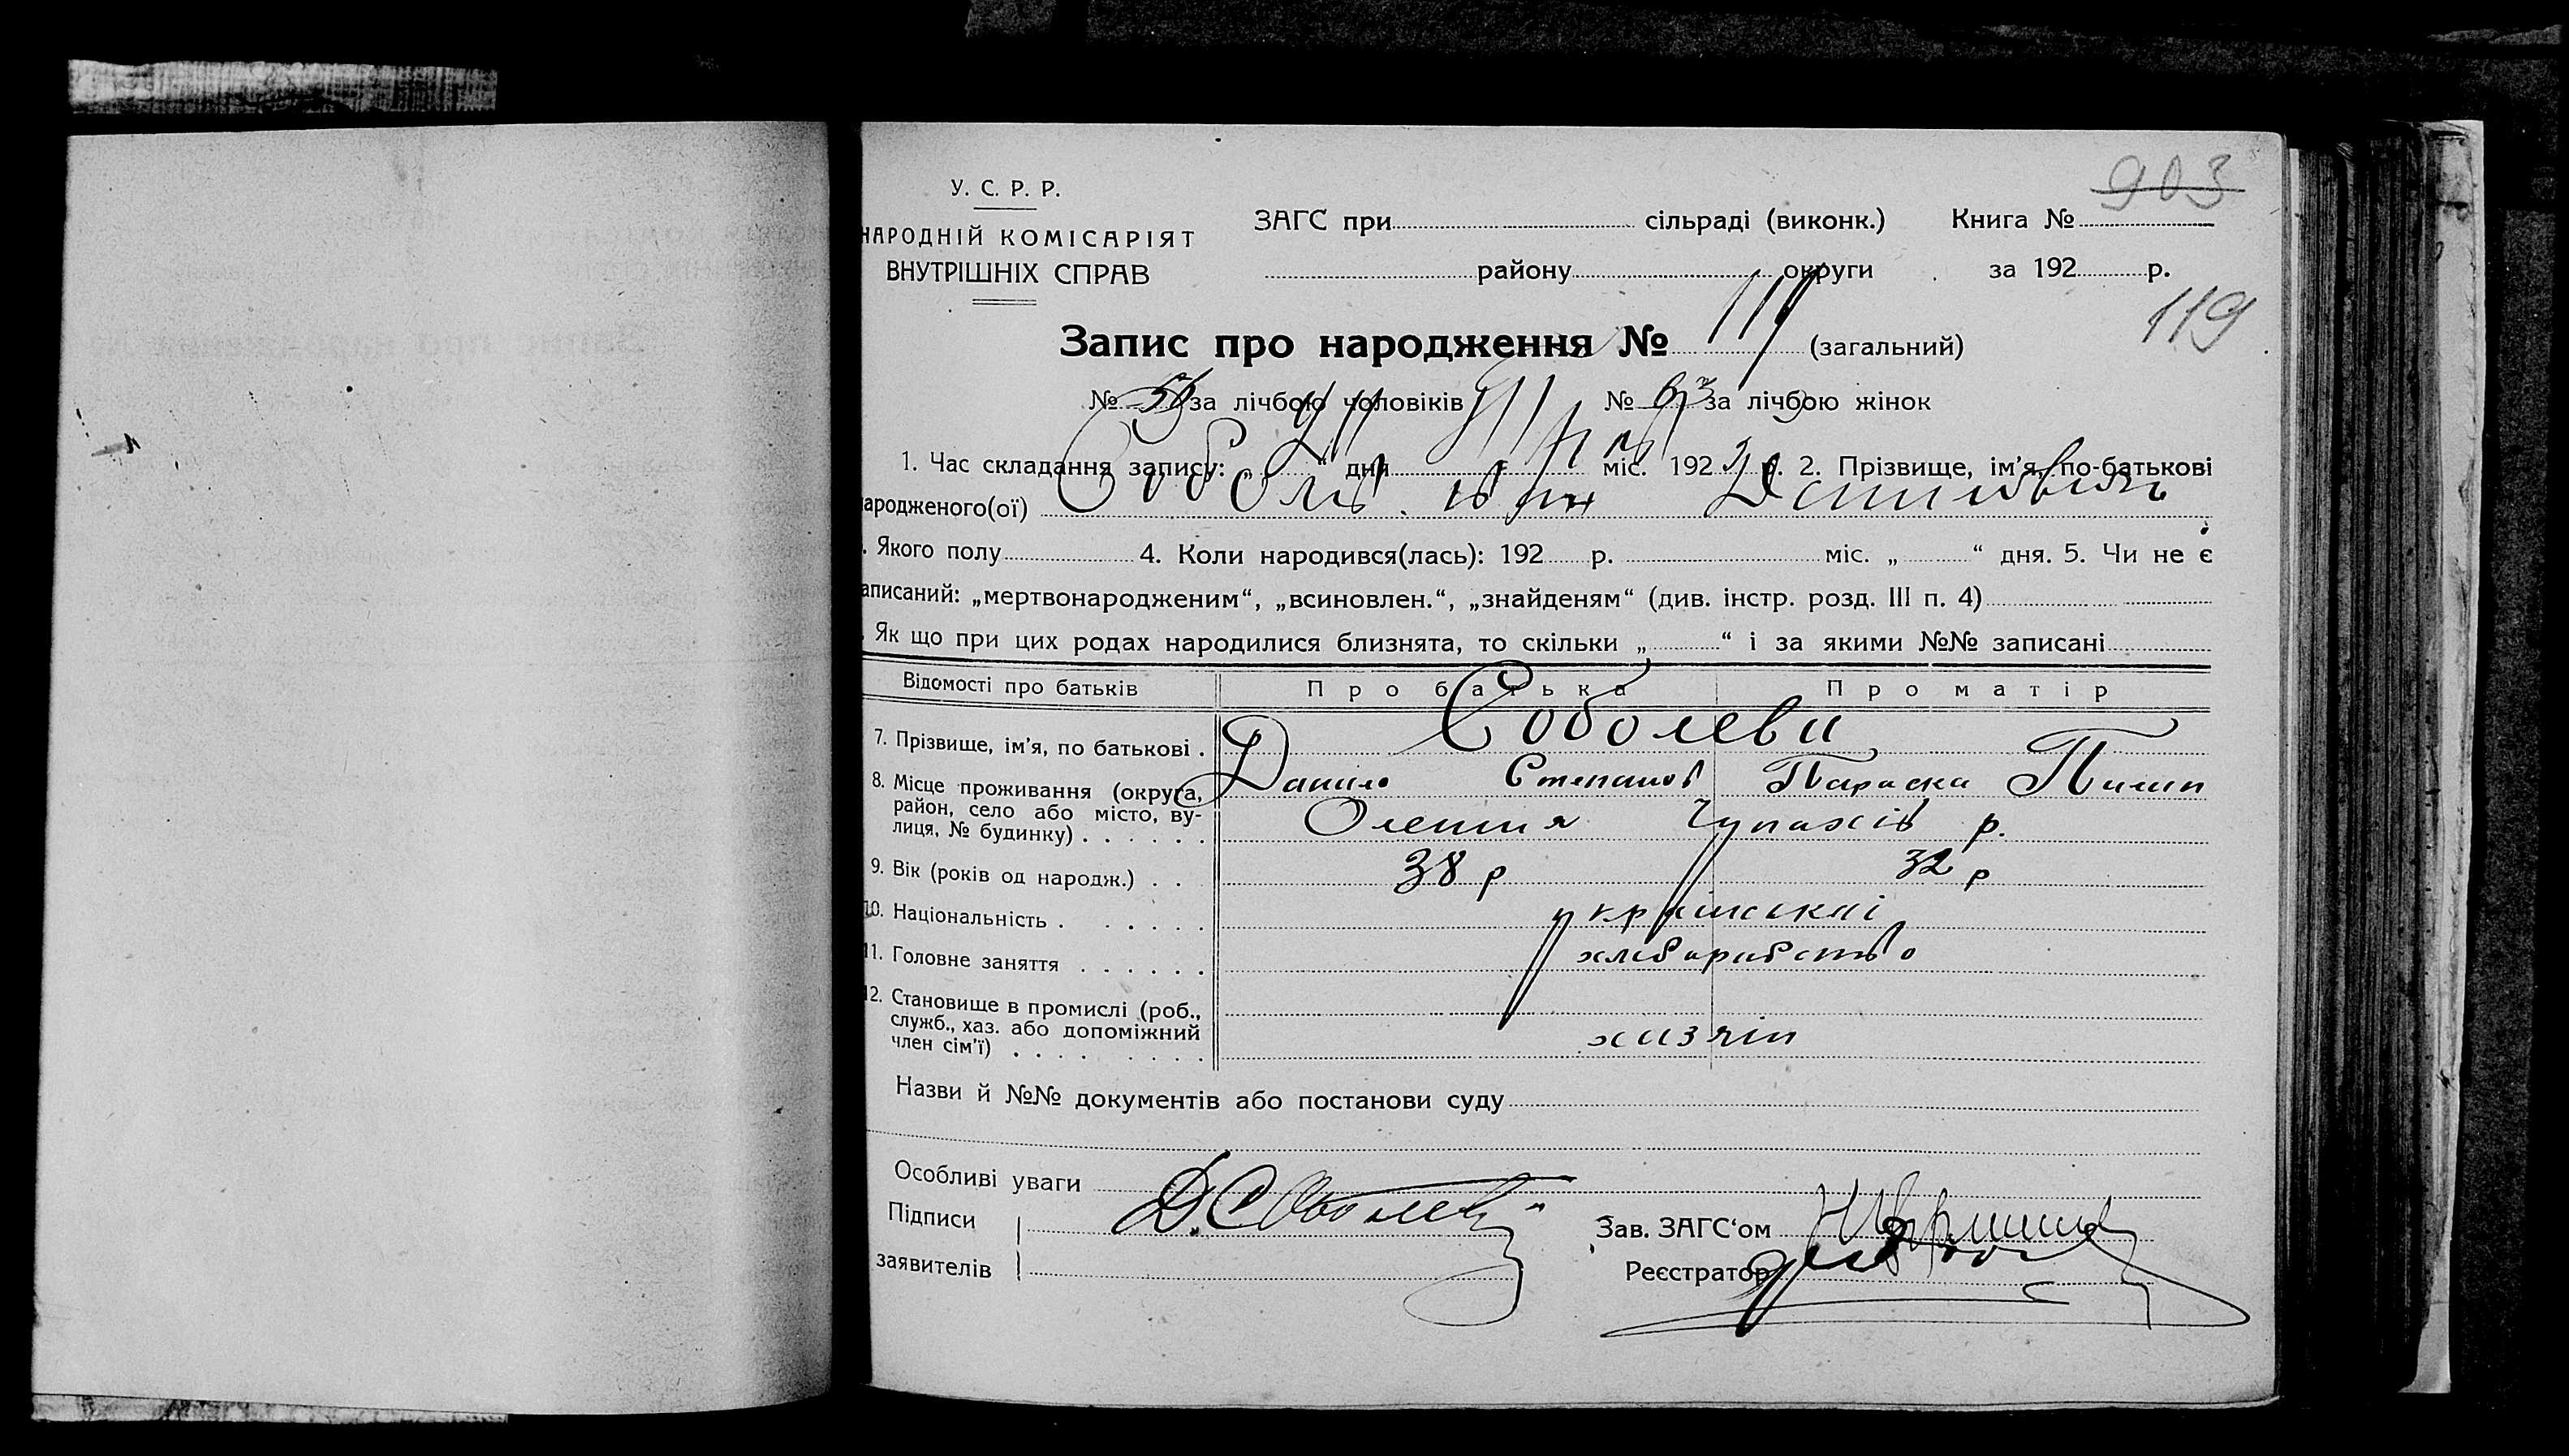 903
У. С. Р. Р.
НАРОДНІЙ КОМІСАРІЯТ
ВНУТРІШНІХ СПРАВ
ЗАГС при сільраді (виконк.) Книга №
району округи за 192 р.
119
Запис про народження № (загальний)
№ за лічбою чоловіків № 63 за лічбою жінок
1. Час складання запису: „ “ дня міс. 192 р. 2. Прізвище, ім’я, по-батькові
ародженого(ої) Соболів
. Якого полу 4. Коли народився(лась): 192 р. міс. „ “ дня. 5. Чи не є
аписаний: „мертвонародженим“, „всиновлен.“, „знайденям“ (див. інстр. розд. III п. 4)
. Як що при цих родах народилися близнята, то скільки „ “ і за якими №№ записані
Відомості про батьків Про батька Про матір
7. Прізвище, ім’я, по батькові . Соболеви
Данило Степанов Параска Пилип
8. Місце проживання (округа, район, село або місто, ву-
лиця, № будинку) . . . . . . Олешня Чупахів р.
9. Вік (років од народж.) . . 38 р 32 р
10. Національність . . . . . . українські
11. Головне заняття . . . . . . хліборобство
12. Становище в промислі (роб.,
служб., хаз. або допоміжний
член сім’ї) . . . . . . . . хазяїн
Назви й №№ документів або постанови суду
Особливі уваги
Підписи Д. Соболев
заявителів
Зав. ЗАГС‘ом
Реєстратор